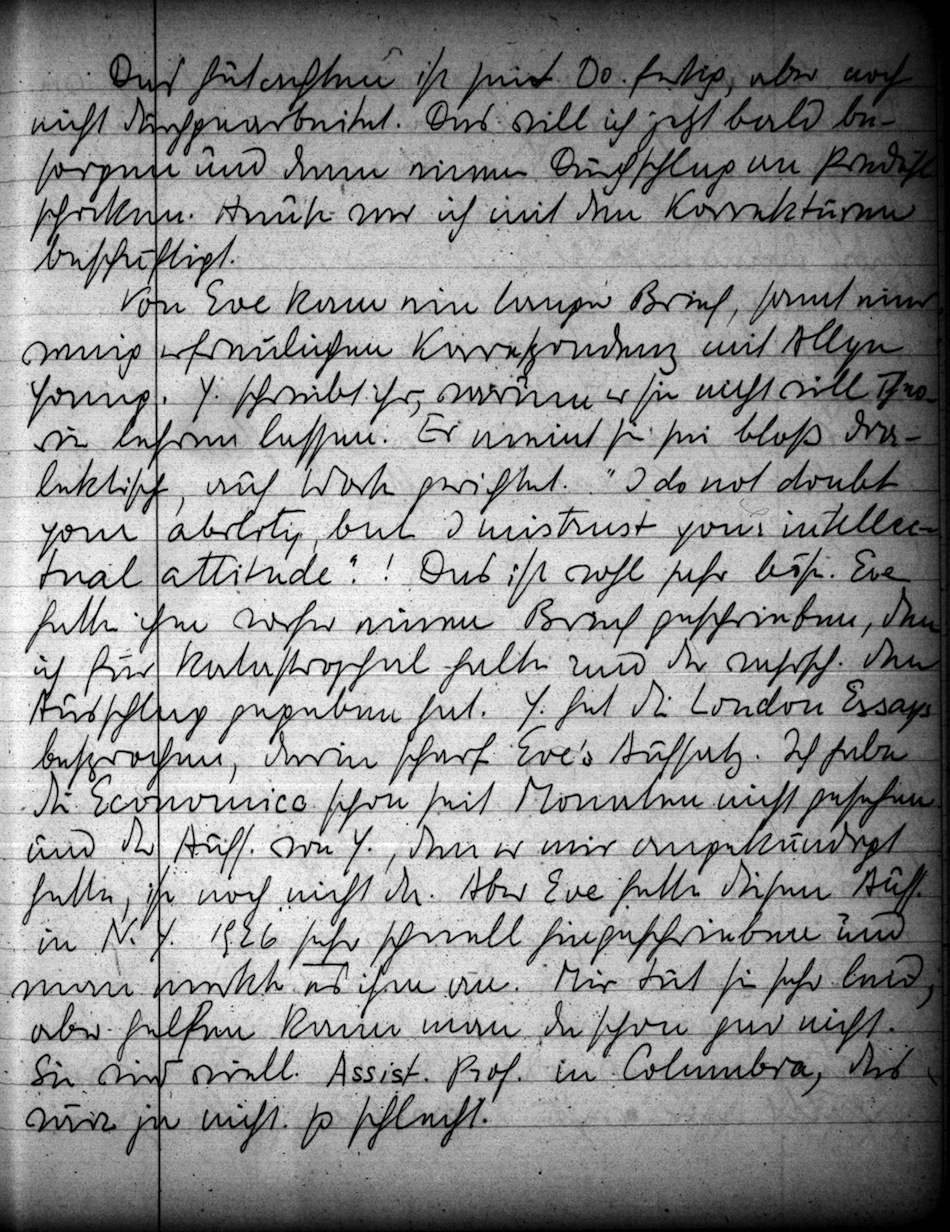 Das Gutachten ist seit Do. fertig, aber noch
nicht durchgearbeitet. Das will ich jetzt bald be-
sorgen und dann einen Durchschlag an
schicken. Heute war ich mit den Korrekturen
beschäftigt.
Von Eve kam ein langer Brief, samt einer
wenig erfreulichen Korrespondenz mit Allyn
Young. Y. schreibt ihr, warum er sie nicht will Theo-
rie lehren lassen. Er meint sie sei bloß dia-
lektisch, auf Worte gerichtet. "I do not doubt
your ability, but I mistrust your intellec-
tual attitude"! Das ist wohl sehr böse. Eve
hatte ihm vorher einen Brief geschrieben, den
ich für katastrophal halte und der wahrsch. den
Ausschlag gegeben hat. Y. hat die London Essays
besprochen, darin scharf Eve's Aufsatz. Ich habe
die Economica schon seit Monaten nicht gesehen
und der Aufs. von Y., den er mir angekündigt
hatte, ist noch nicht da. Aber Eve hatte diesen Aufs.
in N. Y. 1926 sehr schnell hingeschrieben und
man merkte es ihm an. Mir tut sie sehr leid,
aber helfen kann man da schon gar nicht.
Sie wird viell. Assist. Prof. in Columbia, das
wäre ja nicht so schlecht.